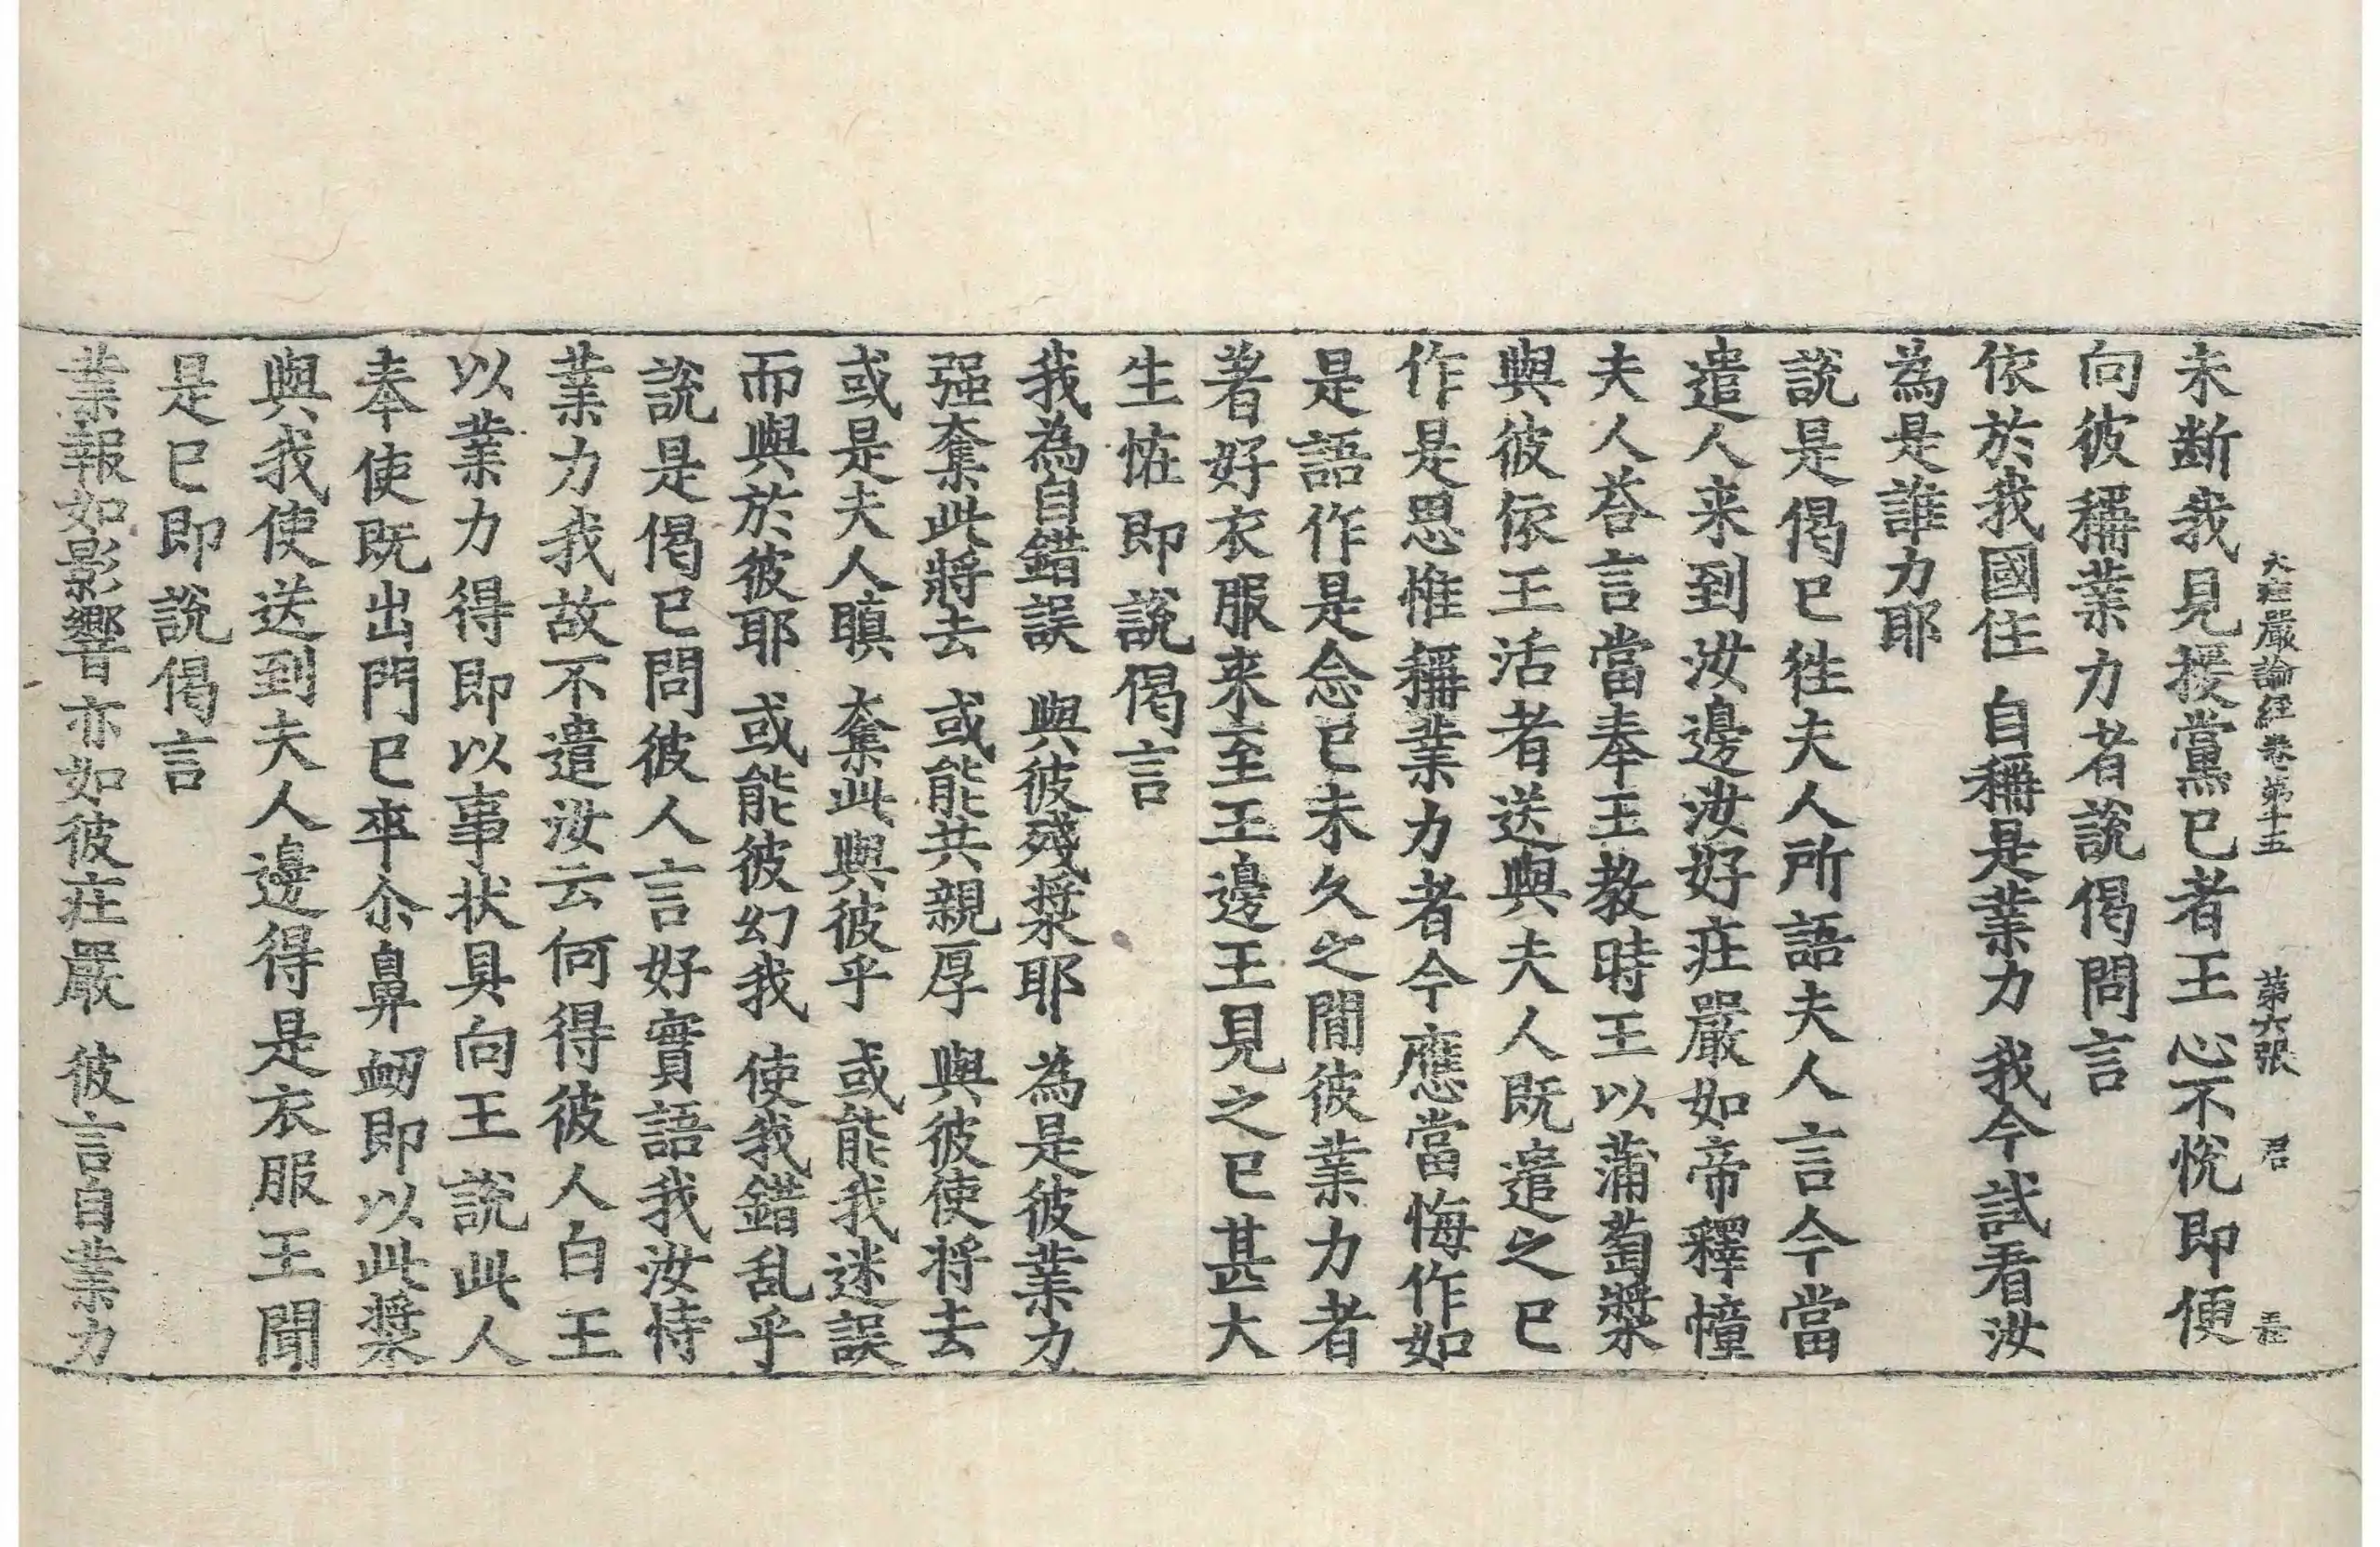 大莊嚴論經卷第十五 第六張 君
未斷我見援黨已者王心不悅即便
向彼稱業力者說偈問言
依於我國住 自稱是業力 我今試看汝
為是誰力耶
說是偈已徃夫人所語夫人言今當
遣人来到汝邊汝好莊嚴如帝釋幢
夫人荅言當奉王教時王以蒲萄漿
與彼依王活者送與夫人既遣之已
作是思惟稱業力者今應當悔作如
是語作是念已未久之閒彼業力者
著好衣服来至王邊王見之已甚大
生恠即說偈言
我為自錯誤 與彼殘漿耶 為是彼業力
强奪此將去 或能共親厚 與彼使將去
或是夫人瞋 奪此與彼乎 或能我迷誤
而與於彼耶 或能彼幻我 使我錯乱乎
說是偈已問彼人言好實語我汝恃
業力我故不遣汝云何得彼人白王
以業力得即以事狀具向王說此人
奉使既出門已卒尒鼻衂即以此漿
與我使送到夫人邊得是衣服王聞
是已即說偈言
業報如影響 亦如彼莊嚴 彼言自業力